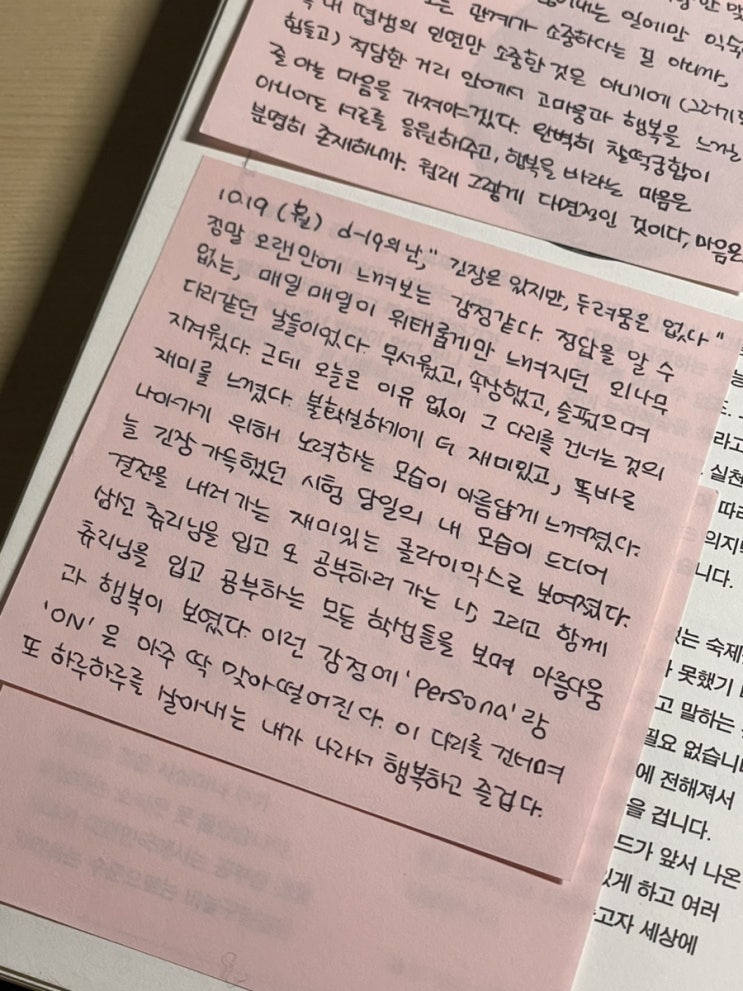 관계가 소중하다는 걸 아니까,
인연만 소중한 것은 아니기에 (그러기도
힘들고) 적당한 거리 안에서 고마움과 행복을 느끼는
줄 아는 마음을 가져야겠다. 완벽히 찰떡궁합이
아니어도 서로를 응원해주고, 행복을 바라는 마음은
분명히 존재하니까. 원래 그렇게 다면적인 것이다, 마음은
10.19 (월) d-19의 난, " 긴장은 있지만, 두려움은 없다 "
정말 오랜만에 느껴보는 감정같다. 정답을 알 수
없는, 매일매일이 위태롭게만 느껴지던 외나무
다리같던 날들이었다. 무서웠고, 속상했고, 슬펐으며
지겨웠다. 근데 오늘은 이유 없이 그 다리를 건너는 것의
재미를 느꼈다. 불확실하기에 더 재미있고, 똑바로
나아가기 위해 노력하는 모습이 아름답게 느껴졌다.
늘 긴장 가득했던 시험 당일의 내 모습이 드디어
결전을 내러 가는 재미있는 클라이막스로 보여졌다.
삼선 츄리닝을 입고 또 공부하러 가는 나, 그리고 함께
츄리닝을 입고 공부하는 모든 학생들을 보며 아름다움
과 행복이 보였다. 이런 감정에 'persona' 랑
'ON' 은 아주 딱 맞아떨어진다. 이 다리를 건너며
또 하루하루를 살아내는 내가 나라서 행복하고 즐겁다.
실천
의지
니다.
있는 숙제
못했기
고 말하는
필요 없습니다
에 전해져서
을 겁니다.
드가 앞서 나온
있게 하고 여러
고자 세상에